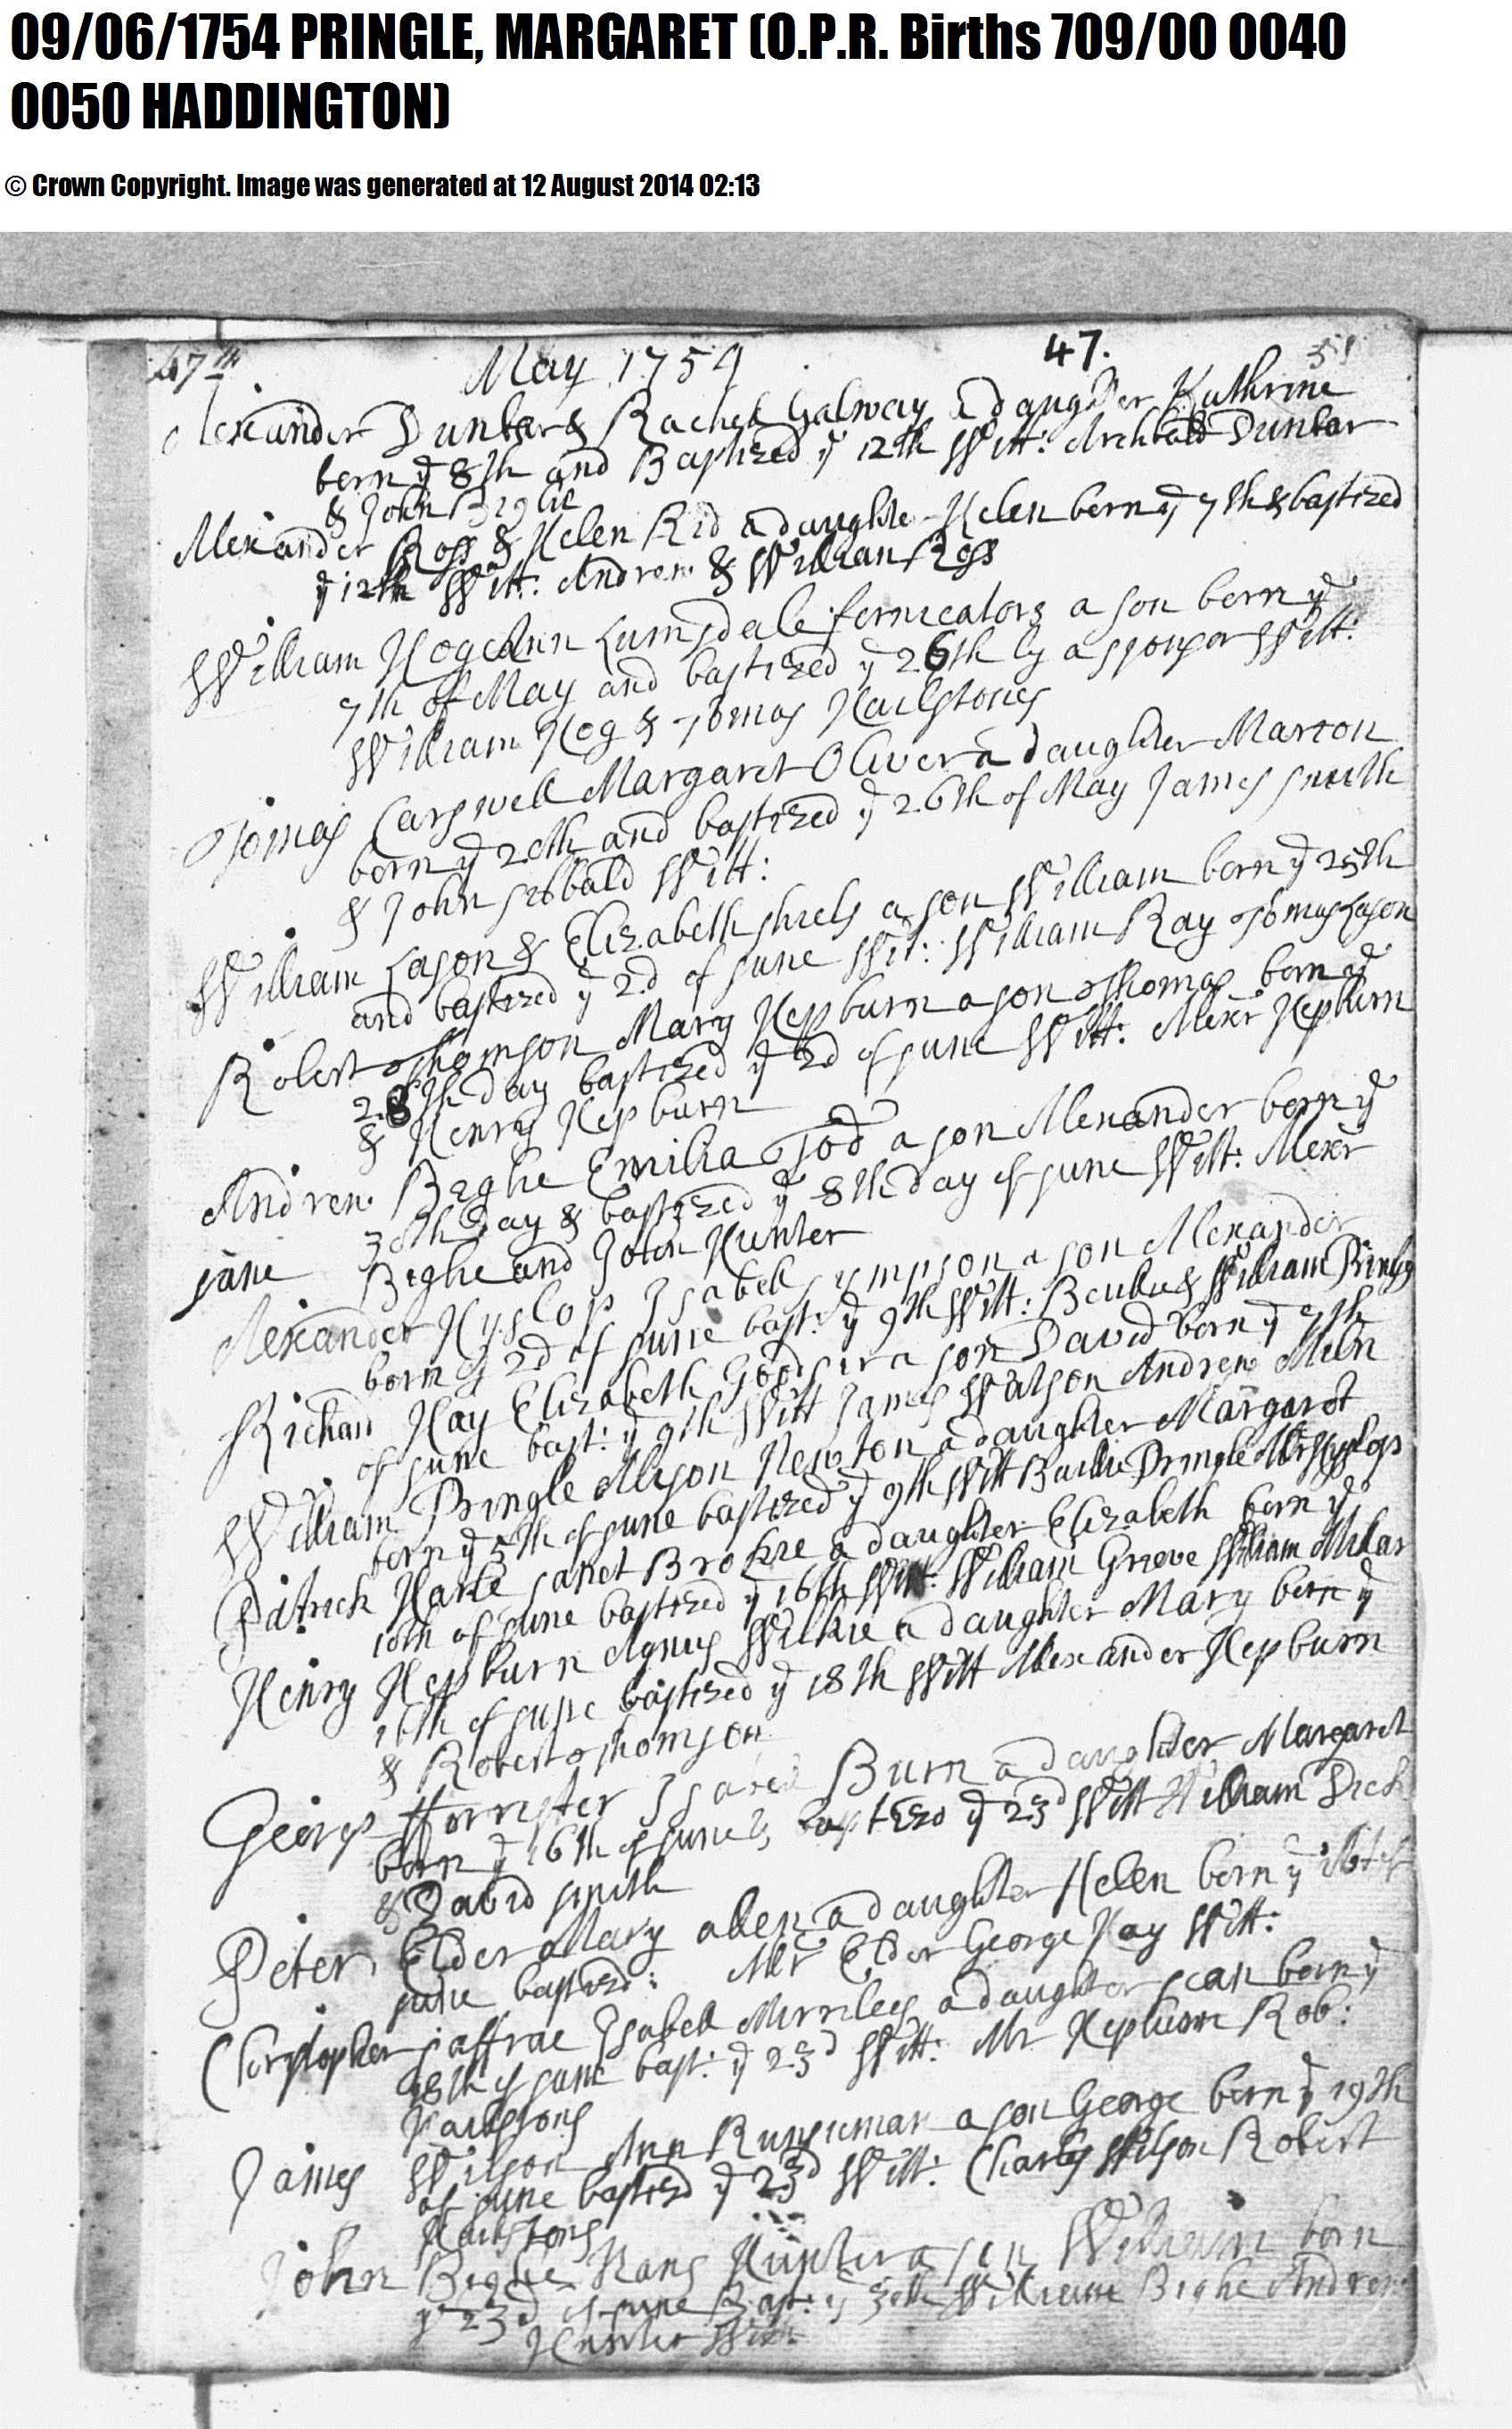 09/06/1754 PRINGLE, MARGARET (O.P.R. Births 709/00 0040
0050 HADDINGTON)
© Crown Copyright. Image was generated at 12 August 2014 02:13
47th May 1754 47. 51
Alexander Dunbar & Rachel Galway a daughter Kathrine
born ye 8th and Baptized ye 12th Witt: Archbald Dunbar
& John Bighe
Alexander Ross & Helen Rid a daughter Helen born ye 7th & baptized
ye 12th Witt: Andrew & William Ross
William Hog & Ann Lumsdale fornicators a son born ye
7th of May and baptized ye 26th by a sponsor Witt:
William Hog & Tomas Hailstones
Tomas Carswell Margaret Oliver a daughter Marion
born ye 20th and baptized ye 26th of May James Smith
& John Sibbald Witt:
William Lason & Elizabeth Shiels a son William born ye 25th
and baptized ye 2d of June Wit: William Ray Tomas Lason
Robert Thomson Mary Hepburn a son Thomas born ye
28th day baptized ye 2d of June Witt: Alexr Hepburn
& Henry Hepburn
Andrew Bighe Emilia Tod a son Alexander born ye
30th day & baptized ye 8th day of June Witt: Alexr
Bighe and John Hunter
June
Alexander Hyslop Isabell Sympson a son Alexander
born ye 2d of June bapt: ye 9th Witt: Bailie & William Pringle
Richard Hay Elizabeth Goodsir a son David born ye 7th
of June bapt: ye 9th Witt James Watson Andrew Miln
William Pringle Alison Newton a daughter Margaret
born ye 5th of June baptized ye 9th Witt Bailie Pringle Alexr Hyslop
Patrick Harle Janet Brokie a daughter Elizabeth born ye
10th of June baptized ye 16th Witt: William Grieve William Milar
Henry Hepburn Agnes Wilkie a daughter Mary born ye
16th of June baptized ye 18th Witt Alexander Hepburn
& Robert Thomson
George Forrister Isabell Burn a daughter Margaret
born ye 16th of June & baptized ye 23d Witt William Dick
& David Smith
Peter Elder Mary Allen a daughter Helen born ye 16 of
June baptized: Mr Elder George Hay Witt:
Chorstopher Jaffrae Isabell Mirrilees a daughter Jean born ye
18th of June bapt: ye 23d Witt: Mr Hepburn Rob:
Hailstons
James Wilson Ann Runsiman a son George born ye 19th
of June baptized ye 23d Witt: Charles Wilson Robert
Hailstons
John Bighe Nans Hunter a son William born
ye 23d of June Bapt: ye 30th William Bighe Andrew
Hunter Witt